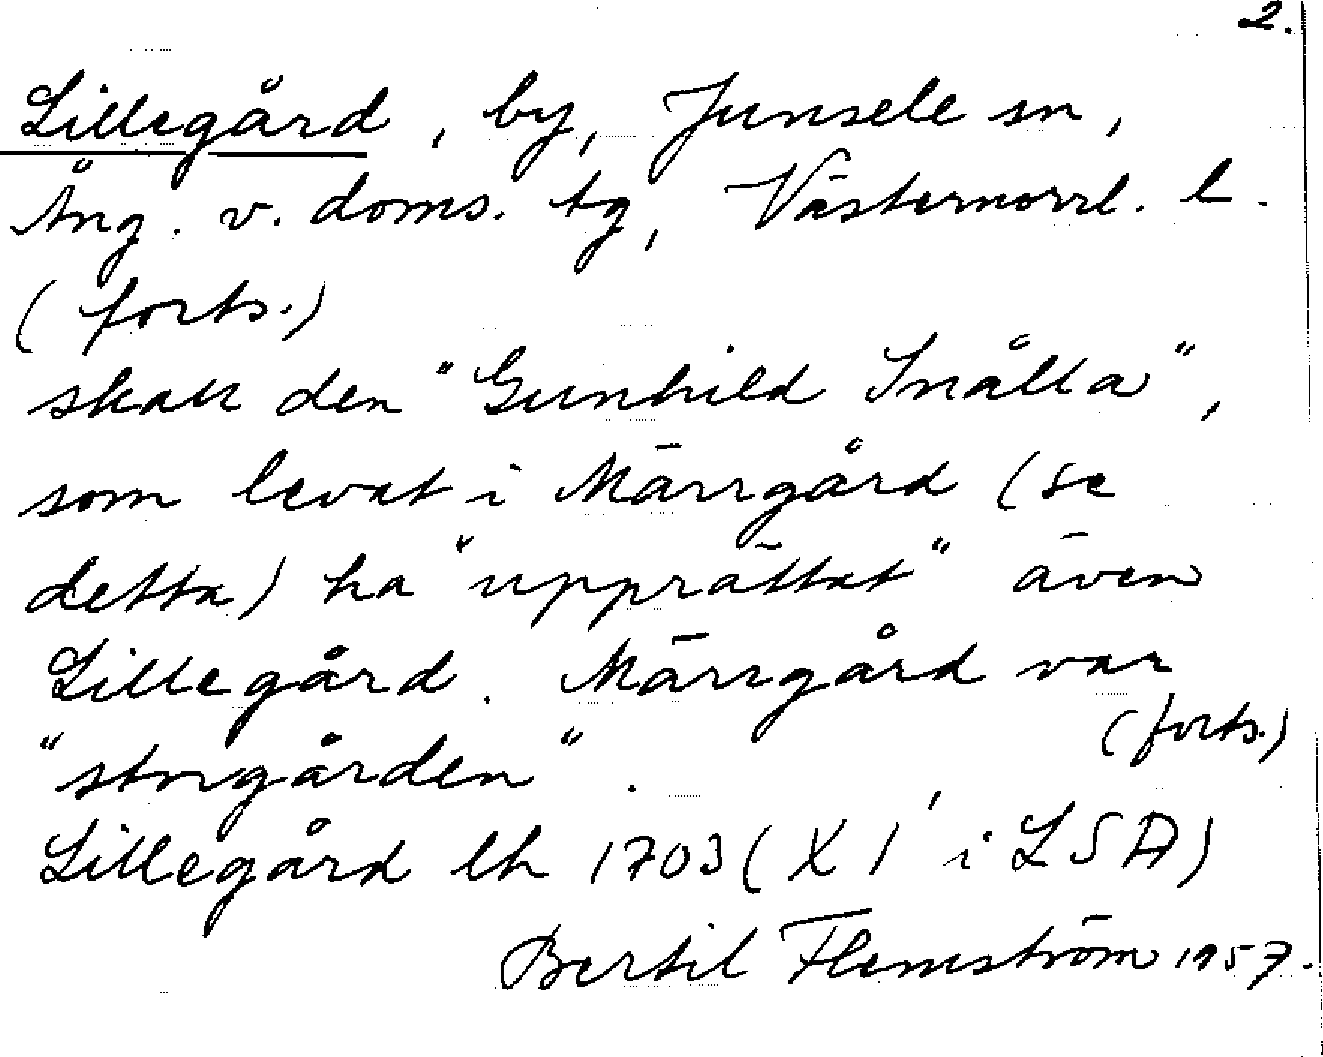 2.
Lillegård, by, Junsele sn,
Ång. v. doms. tg, Västernorrl. l.
(forts.)
skall den "Gunhild Snålla",
som levat i Märrgård (se
detta) ha "upprättat" även
Lillegård. Märrgård var
(forts.)
"storgården".
Lillegård lh 1703 (X 1' i LSA)
Bertil Flemström 1957.